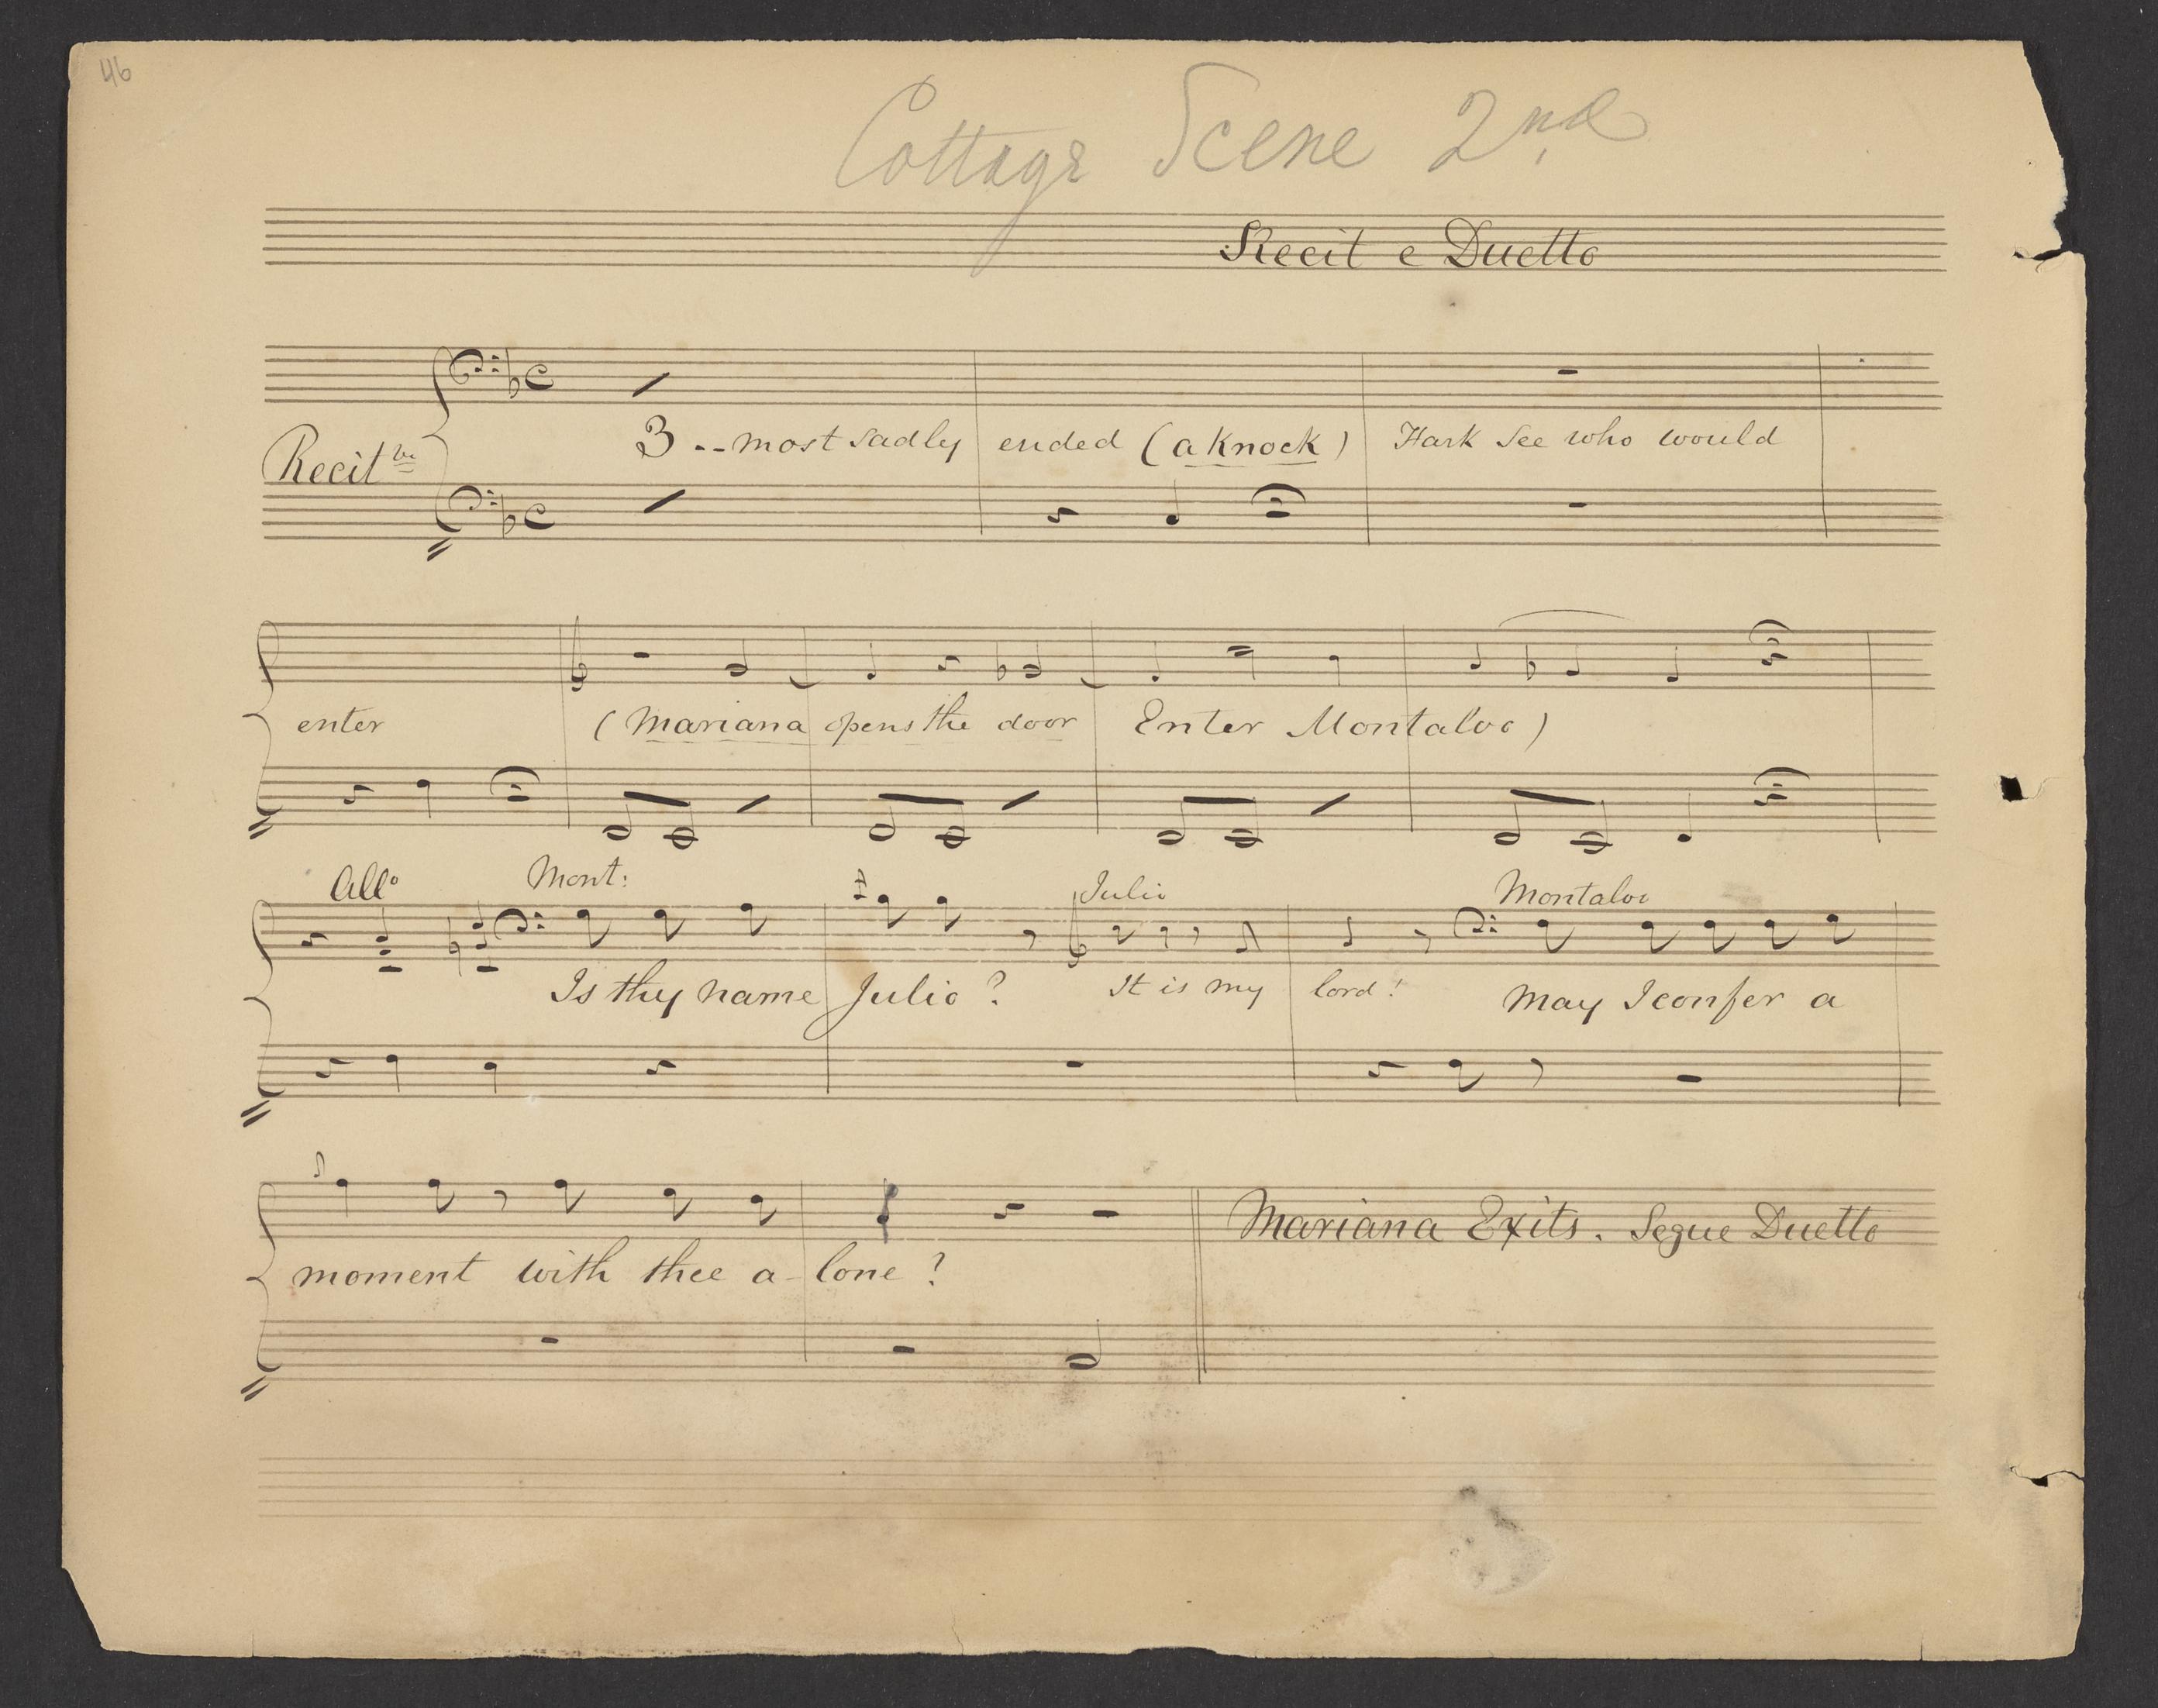 46
Cottage Scene 2nd
Recit e Duetto
Recit ve
3 -- most sadly ended (a Knock) Hark See who would
enter (Mariana opens the door Enter Montalvo)
Allo Mont: Julio Montalvo
Is thy name Julio? It is my lord! May I confer a
moment with thee a-lone? Mariana Exits. Segue Duetto